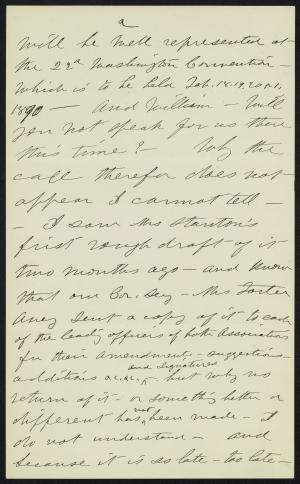 2
will be well represented at
the 22d Washington Convention -
which is to be held Feb. 18.19.20 & 21,
1890 - And William - Will
you not speak for us there
this time? - Why the
call therefor does not
appear I cannot tell -
- I saw Mrs Stanton's
first rough draft of it
two months ago - and know
that our Cor. Secy - Mrs Foster
Avery sent a copy of it to each
of the leading officers of both Associations
for their amendments - suggestions -
and signatures
additions &c. &c. - but why no
return of it - or something better or
different has not been made - I
do not understand - and
because it is so late - too late -